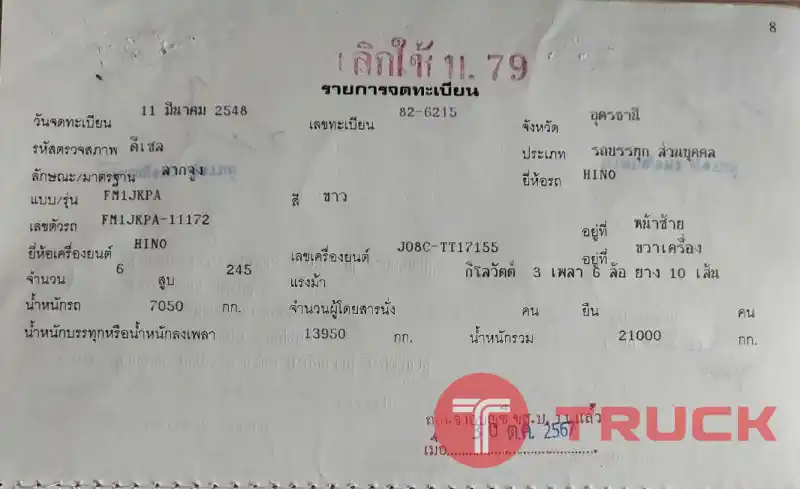 8
เลิกใช้ ม. 79
รายการจดทะเบียน
วันจดทะเบียน 11 มีนาคม 2548 เลขทะเบียน 82-6215 จังหวัด อุดรธานี
รหัสตรวจสภาพ ดีเซล ประเภท รถบรรทุก ส่วนบุคคล
ลักษณะ/มาตรฐาน ลากจูง ยี่ห้อรถ HINO
แบบ/รุ่น FM1JKPA สี ขาว
เลขตัวรถ FM1JKPA-11172 อยู่ที่ หน้าซ้าย
ยี่ห้อเครื่องยนต์ HINO เลขเครื่องยนต์ J08C-TT17155 อยู่ที่ ขวาเครื่อง
จำนวน 6 สูบ 245 แรงม้า กิโลวัตต์ 3 เพลา 6 ล้อ ยาง 10 เส้น
น้ำหนักรถ 7050 กก. จำนวนผู้โดยสารนั่ง คน ยืน คน
น้ำหนักบรรทุกหรือน้ำหนักลงเพลา 13950 กก. น้ำหนักรวม 21000 กก.
แล้ว
เมื่อ 30 ต.ค. 2567
TRUCK